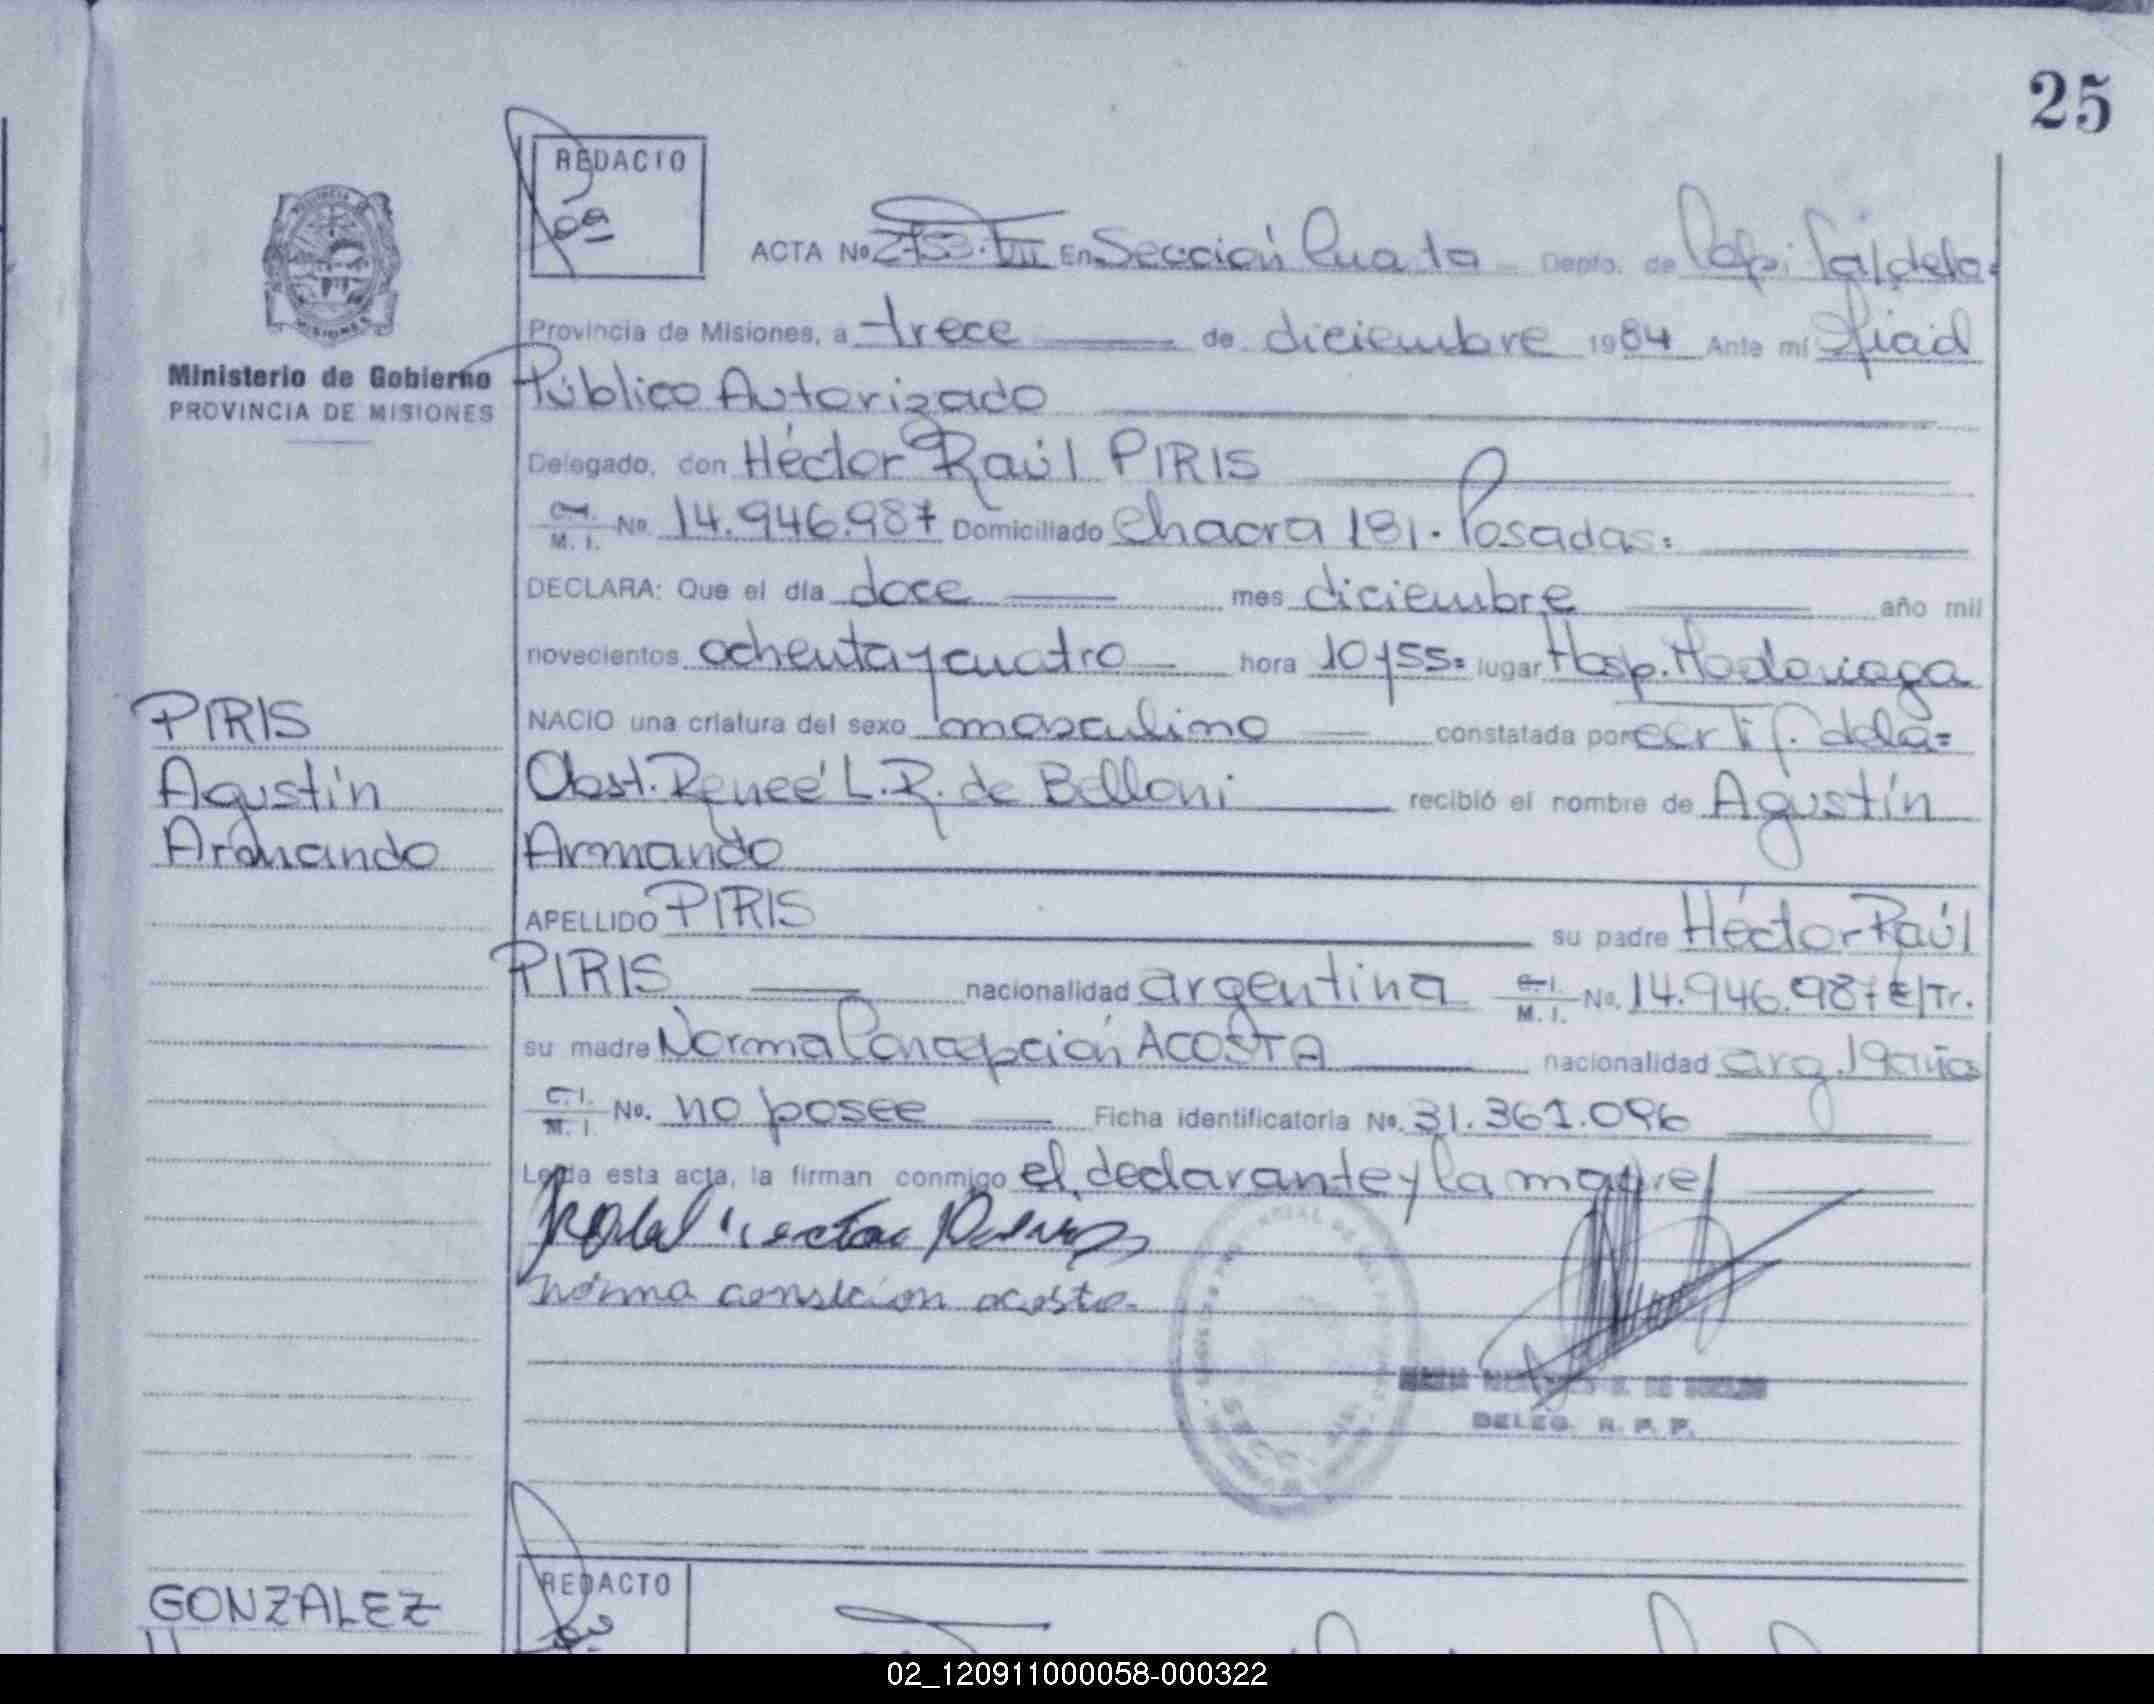 25
REDACTO
ACTA No 2753.VII En Sección Cuarta Depto. de Capital de la
Provincia de Misiones, a trece de diciembre 1984 Ante mí Oficial
Ministerio de Gobierno
PROVINCIA DE MISIONES
Público Autorizado
Delegado, con Héctor Raúl PIRIS
C.I. M. I. No. 14.946.987 Domiciliado Chacra 181. Posadas.
DECLARA: Que el día doce mes diciembre año mil
novecientos ochenta y cuatro hora 10y55= lugar Hosp. Madariaga
PIRIS
NACIO una criatura del sexo masculino constatada por certif. de la=
Agustín
Obst. Reneé L.R. de Belloni recibió el nombre de Agustín
Armando
Armando
APELLIDO PIRIS su padre Héctor Raúl
PIRIS nacionalidad argentina C.I. M. I. No. 14.946.987 E/Tr.
su madre Norma Concepción ACOSTA nacionalidad arg. 19 años
C.I. M. I. No. no posee Ficha identificatoria No. 31.361.096
Leída esta acta, la firman conmigo el declarante y la madre
norma consecion acosta
DELEG. R. P. P.
REDACTO
GONZALEZ
02_120911000058-000322